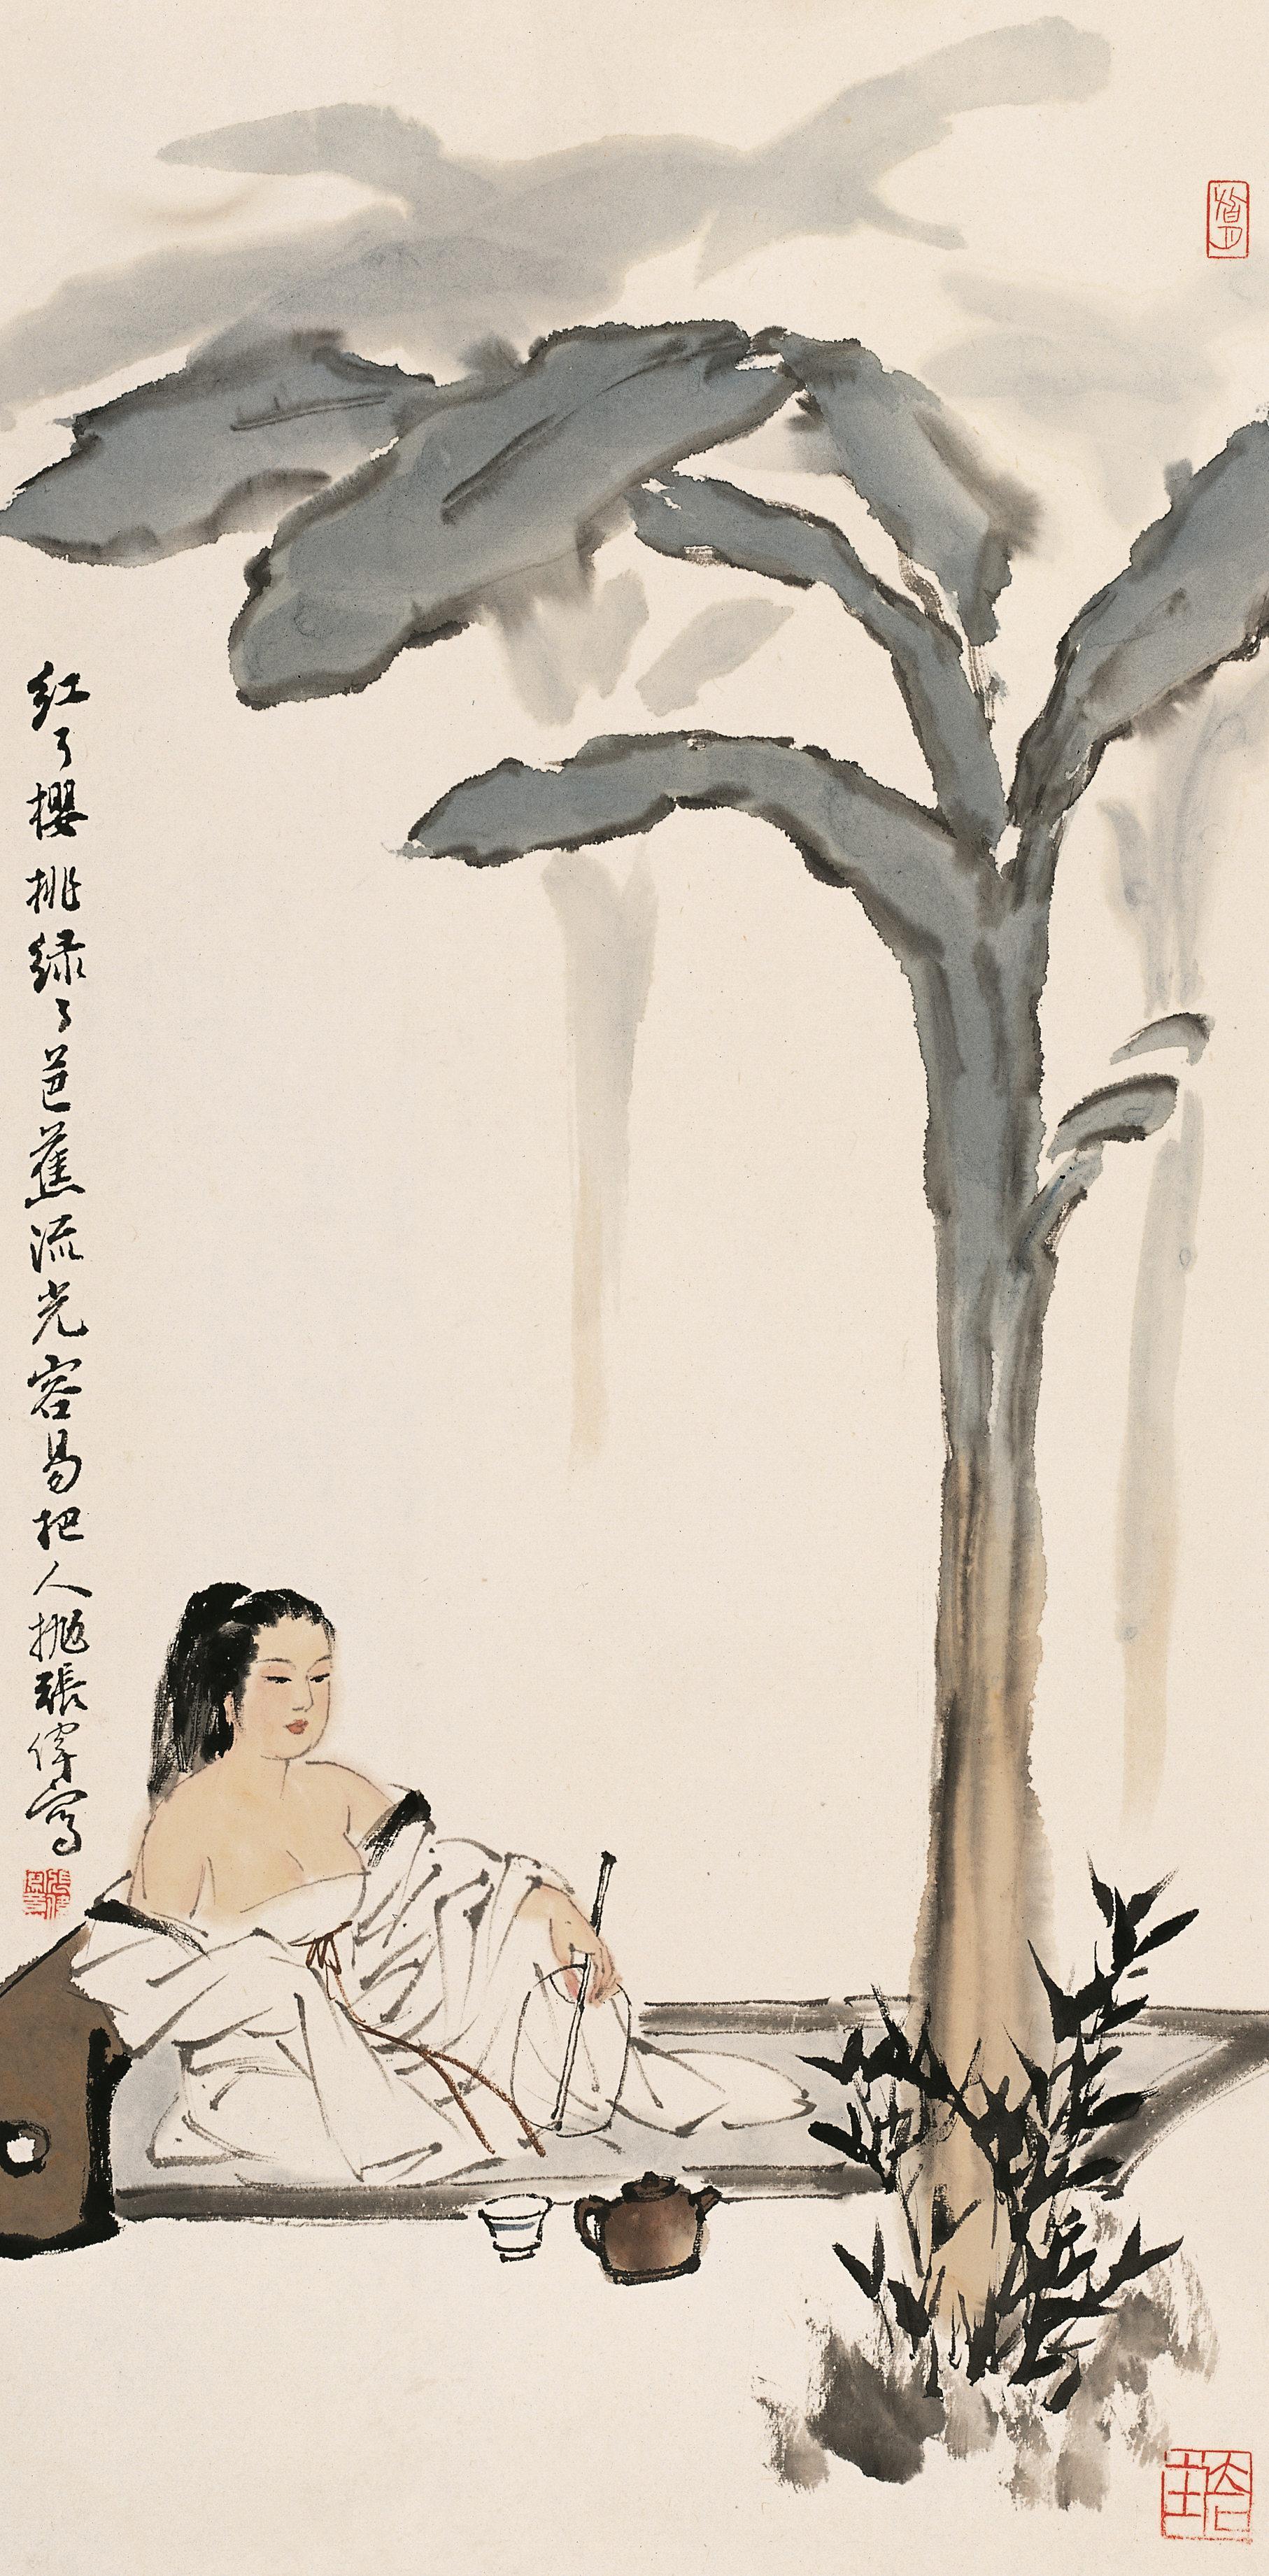 红了櫻桃绿了芭蕉流光容易把人抛張偉寫